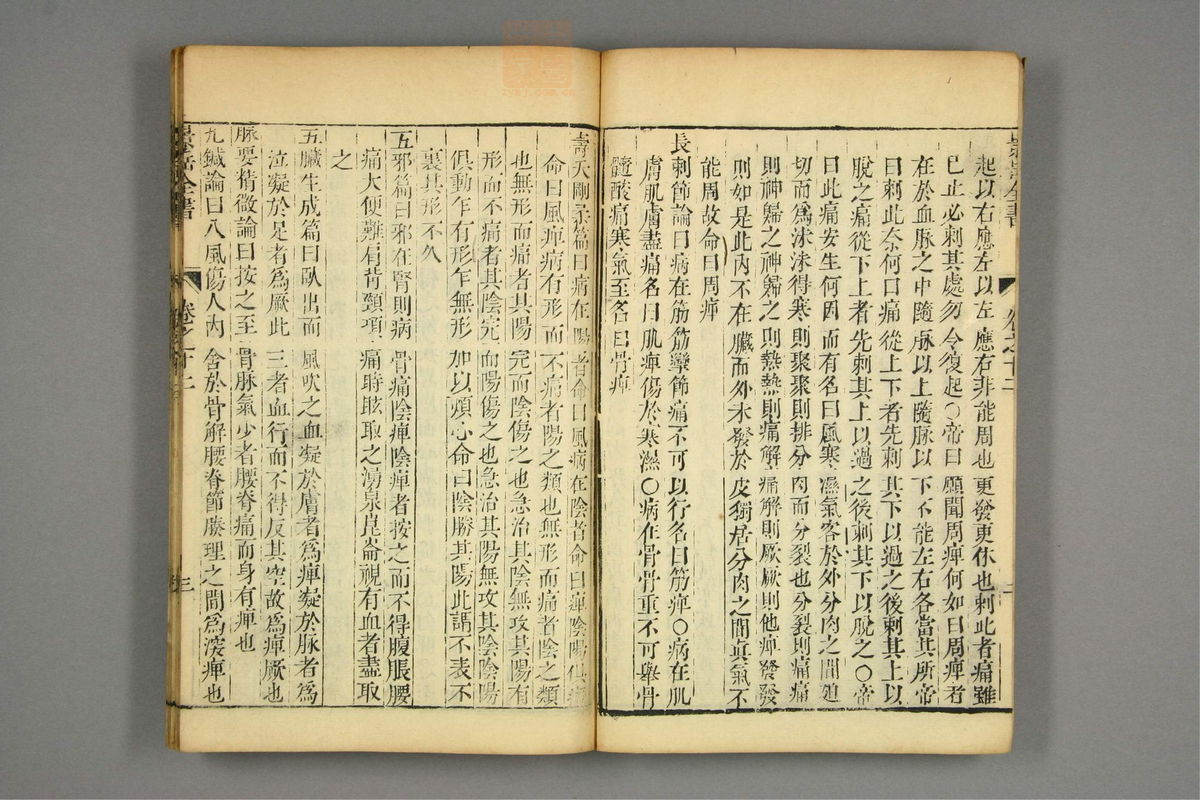 起以右應左以左應右非能周也更發更休也刺此者痛雖
已止必刺其處勿令復起〇帝曰願聞周痺何如曰周痺者
在於血脉之中隨脉以上隨脉以下不能左右各當其所帝
曰刺此奈何曰痛從上下者先刺其下以過之後刺其上以
脫之痛從下上者先刺其上以過之後刺其下以脫之〇帝
曰此痛安生何因而有名曰風寒濕氣客於外分肉之間迫
切而爲沫沫得寒則聚聚則排分肉而分裂也分裂則痛痛
則神歸之神歸之則熱熱則痛解痛解則厥厥則他痺發發
則如是此内不在臟而外未發於皮獨居分肉之間眞氣不
能周故命曰周痺
長刺節論曰病在筋筋攣節痛不可以行名曰筋痺〇病在肌
膚肌膚盡痛名曰肌痺傷於寒濕〇病在骨骨重不可舉骨
髓酸痛寒氣至名曰骨痺
壽夭剛柔篇曰病在陽者命曰風病在陰者命曰痺陰陽俱病
命曰風痺病有形而不痛者陽之類也無形而痛者陰之類
也無形而痛者其陽完而陰傷之也急治其陰無攻其陽有
形而不痛者其陰完而陽傷之也急治其陽無攻其陰陰陽
俱動乍有形乍無形加以煩心命曰陰勝其陽此謂不表不
裏其形不久
五邪篇曰邪在腎則病骨痛陰痺陰痺者按之而不得腹脹腰
痛大便難肩背頸項痛時眩取之湧泉崑崙視有血者盡取
之
五臟生成篇曰臥出而風吹之血凝於膚者爲痺凝於脉者爲
泣凝於足者爲厥此三者血行而不得反其空故爲痺厥也
脉要精微論曰按之至骨脉氣少者腰脊痛而身有痺也
九鍼論曰八風傷人内舍於骨解腰脊節腠理之間爲深痺也
景岳全書
卷之十二
三